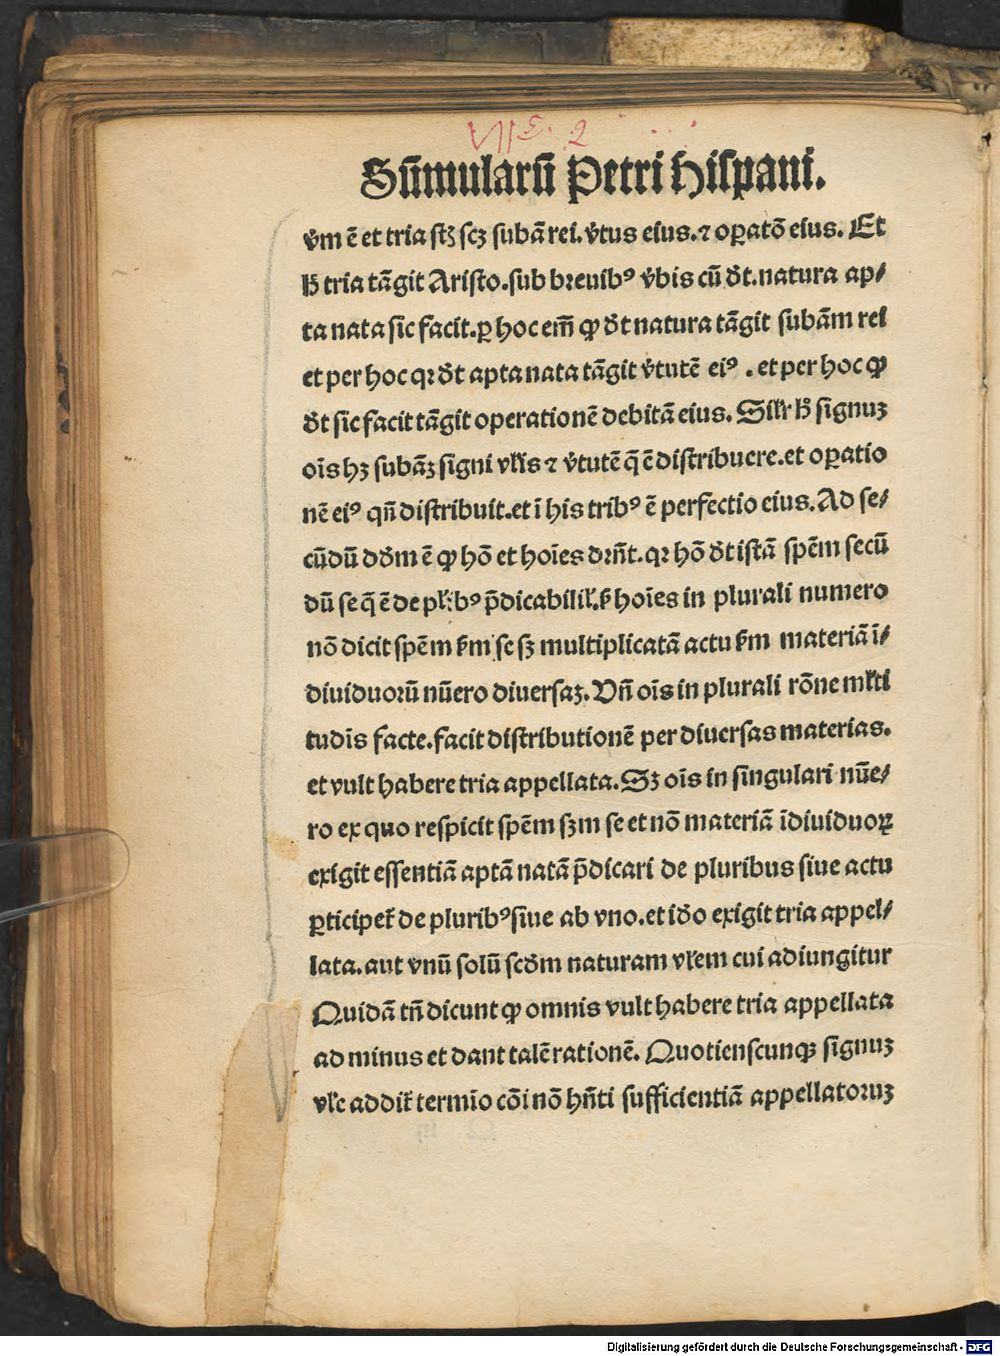 VII 2
Sūmularū Petri Hispani.
v̓m ē et tria ſtꝫ ſcꝫ ſubā rei. v̓tus eius. ⁊ oꝑatō eius. Et
hꝰ tria tāgit Ariſto. ſub bꝛeuibꝰ v̓bis cū dt. natura ap/
ta nata ſic facit. ꝑ hoc em̄ ꝙ dt natura tāgit ſubām rei
et per hoc qꝛ dt apta nata tāgit v̓tutē eiꝰ . et per hoc ꝙ
dt ſic facit tāgit operationē debitā eius. Silr hꝰ ſignuꝫ
oīs hꝫ ſubāꝫ ſigni vl̓is ⁊ v̓tutē q̄ ē diſtribuere. et oꝑatio
nē eiꝰ qn̄ diſtribuit. et ī his tribꝰ ē perfectio eius. Ad ſe/
cūdū dd̓m ē ꝙ hō et hoīes dr̄nt. qꝛ hō dt iſtā ſpēm ſecū
dū ſe q̄ ē de pl̓ibꝰ p̄dicabilil. ſꝫ hoīes in plurali numero
nō dicit ſpēm ẜm ſe ſꝫ multiplicatā actu ẜm materiā ī/
diuiduoꝛū nūero diuerſaꝫ. Vn̄ oīs in plurali rōne ml̓ti
tudīs facte. facit diſtributionē per diuerſas materias.
et vult habere tria appellata. Sꝫ oīs in ſingulari nūe/
ro ex quo reſpicit ſpēm ſꝫm ſe et nō materiā īdiuiduoꝝ
exigit eſſentiā aptā natā p̄dicari de pluribus ſiue actu
ꝑticipet̓ de pluribꝰ ſiue ab vno. et iđo exigit tria appel/
lata. aut vnū ſolū ſcđm naturam vl̓em cui adiungitur
Quidā tn̄ dicunt ꝙ omnis vult habere tria appellata
ad minus et dant talē rationē. Quotienſcunqꝫ ſignuꝫ
vl̓e addit̓ termīo cōi nō hn̄ti ſufficientiā appellatoꝛuꝫ
Digitalisierung gefördert durch die Deutsche Forschungsgemeinschaft - DFG